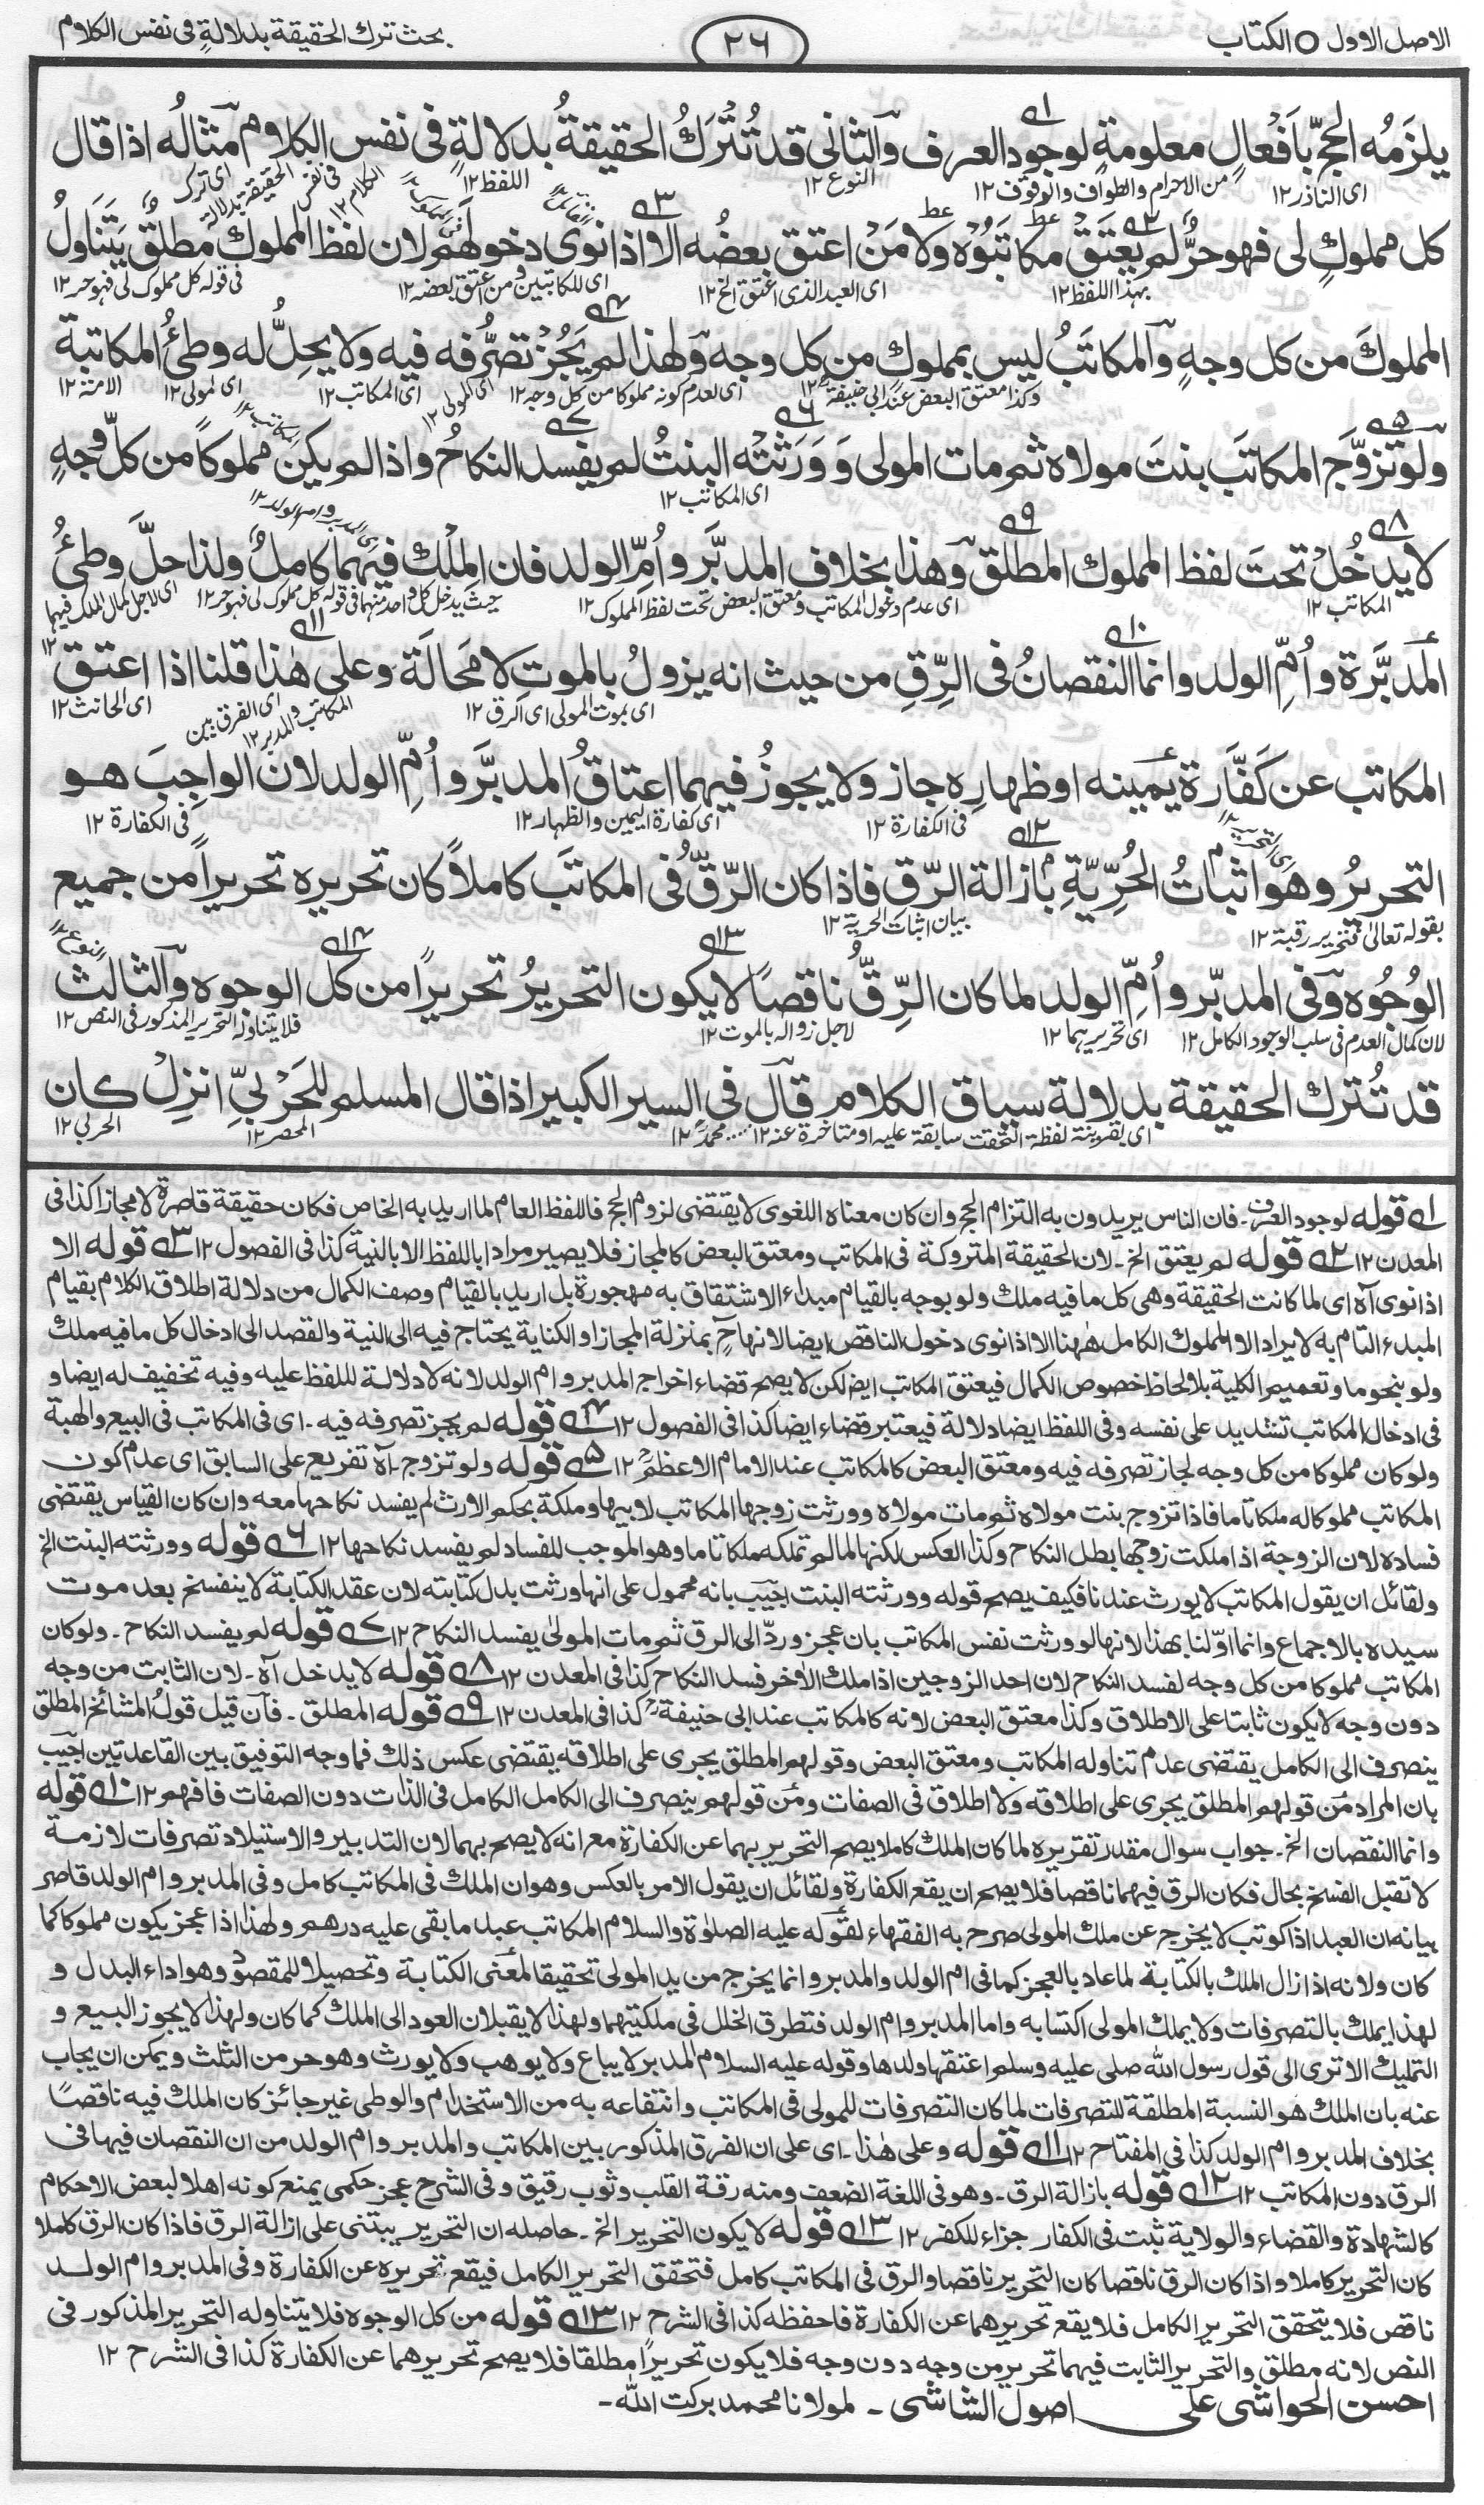 الاصل الاول ○ الكتاب
٢٦
بحث ترك الحقيقة بدلالةٍ فى نفس الكلام
يلزَمُه الحجّ بأَفعالٍ معلومةٍ لوجود العرف والثانى قد تُترَكُ الحقيقةُ بدلالةٍ فى نفس الكلام مثالُه اذا قال
اى الناذر ١٢ من الاحرام والطواف والوقوف ١٢ النوع ١٢ اللفظ ١٢ اى ترك الحقيقة بدلالة فى نفس الكلام ١٢
كل مملوكٍ لى فهو حرٌّ لم يعتَق مكاتَبُوْه ولا مَنْ اعتق بعضُه الا اذا نوى دخولهم لان لفظ المملوك مطلقٌ يتَناوَلُ
بهذا اللفظ ١٢ اى العبد الذى اعتق الخ ١٢ اى للكاتبين ومن اعتق بعضه ١٢ فى قوله كل مملوك لى فهو حر ١٢
المملوكَ من كل وجهٍ والمكاتَبُ ليس بمملوك من كل وجه ولهذا لم يَجُزْ تصرُّفه فيه ولا يحِلُّ له وطئُ المكاتبة
وكذا معتق البعض عند ابى حنيفة ١٢ اى لعدم كونه مملوكا من كل وجه ١٢ اى المولى ١٢ اى المكاتب ١٢ اى لمولى ١٢ الامة ١٢
ولو تزوَّج المكاتَب بنتَ مولاه ثم مات المولى وَوَرَثَتْه البنتُ لم يفسد النكاحُ واذا لم يكن مملوكاً من كلّ وجهٍ
اى المكاتب ١٢
لا يدخُلُ تحتَ لفظ المملوك المطلق وهذا بخلاف المدبَّر واُمِّ الولد فان المِلْك فيهما كاملٌ ولذا حلَّ وطئُ
المكاتب ١٢ اى عدم دخول المكاتب ومعتق البعض تحت لفظ المملوك ١٢ حيث يدخل كل واحد منهما فى قوله كل مملوك لى فهو حر ١٢ اى لاجل كمال الملك فيهما ١٢
المدبَّرة واُمِّ الولد وانما النقصانُ فى الرِّقِ من حيث انه يزولُ بالموتِ لا مَحالَة وعلى هٰذا قلنا اذا اعتق
اى بموت المولى اى الرق ١٢ اى الفرق بين المكاتب والمدبر ١٢ اى الحانث ١٢
المكاتب عن كَفَّارة يمينه او ظهارِه جاز ولا يجوزُ فيهما اعتاقُ المدبَّر واُمِّ الولد لان الواجِبَ هو
فى الكفارة ١٢ اى كفارة اليمين والظهار ١٢ فى الكفارة ١٢
التحريرُ وهو اثباتُ الحُرِّيّةِ بازالة الرّق فاذا كان الرّقُّ فى المكاتَب كاملاً كان تحريره تحريراً من جميع
بقوله تعالى فتحرير رقبة ١٢ بيان اثبات الحرية ١٢
الوُجُوه وفى المدبّر واُمِّ الولد لما كان الرِّقُّ ناقصاً لا يكون التحريرُ تحريراً من كل الوجوه والثالث
لان كمال العدم فى سلب الوجود الكامل ١٢ اى تحريرهما ١٢ لاجل زواله بالموت ١٢ فلا يتناوله التحرير المذكور فى النص ١٢
قد تُترك الحقيقة بدلالة سياق الكلام قال فى السير الكبير اذا قال المسلم للحَرْبىِّ انزِلْ كان
اى بقرينة لفظة التحقت سابقة عليه او متاخرة عنه ١٢ محمد ١٢ المحصر ١٢ الحربى ١٢
١ قوله لوجود العرف۔ فان الناس يريدون به التزام الحج وان كان معناه اللغوى لا يقتضى لزوم الحج فاللفظ العام لما اريد به الخاص فكان حقيقة قاصرة لا مجازا كذا فى
المعدن ١٢ ٢ قوله لم يعتق الخ۔ لان الحقيقة المتروكة فى المكاتب ومعتق البعض كالمجاز فلا يصير مرادا باللفظ الا بالنية كذا فى الفصول ١٢ ٣ قوله الا
اذا نوى آه اى لما كانت الحقيقة وهى كل ما فيه ملك ولو بوجه بالقيام مبداء الاشتقاق به مهجورة بل اريد بالقيام وصف الكمال من دلالة اطلاق الكلام بقيام
المبدء التام به لا يراد الا المملوك الكامل هٰهنا الا اذا نوى دخول الناقص ايضا لانها ح بمنزلة المجاز او الكناية يحتاج فيه الى النية والقصد الى ادخال كل ما فيه ملك
ولو بنحو ما وتعميم الكلية بلا لحاظ خصوص الكمال فيعتق المكاتب ايض لكن لا يصح قضاء اخراج المدبر وام الولد لانه لا دلالة لللفظ عليه وفيه تخفيف له ايضا و
فى ادخال المكاتب تشديد على نفسه وفى اللفظ ايضا دلالة فيعتبر قضاء ايضا كذا فى الفصول ١٢ ٤ قوله لم يجز تصرفه فيه۔ اى فى المكاتب فى البيع والهبة
ولو كان مملوكا من كل وجه لجاز تصرفه فيه ومعتق البعض كالمكاتب عند الامام الاعظمؒ ١٢ ٥ قوله ولو تزوج۔ آه تفريع على السابق اى عدم كون
المكاتب مملوكا له ملكا تاما فاذا تزوج بنت مولاه ثم مات مولاه وورثت زوجها المكاتب لابيها وملكة بحكم الارث لم يفسد نكاحها معه وان كان القياس يقتضى
فساده لان الزوجة اذا ملكت زوجها بطل النكاح وكذا العكس لكنها لما لم تملكه ملكا تاما وهو الموجب للفساد لم يفسد نكاحها ١٢ ٦ قوله وورثته البنت الخ
ولقائل ان يقول المكاتب لا يورث عندنا فكيف يصح قوله وورثته البنت اجيب بانه محمول على انها ورثت بدل كتابته لان عقد الكتابة لا ينفسخ بعد موت
سيده بالاجماع وانما اوّلنا بهذا لانها لو ورثت نفس المكاتب بان عجز وردّ الى الرق ثم مات المولىٰ يفسد النكاح ١٢ ٧ قوله لم يفسد النكاح۔ ولو كان
المكاتب مملوكا من كل وجه لفسد النكاح لان احد الزوجين اذا ملك الأخر فسد النكاح كذا فى المعدن ١٢ ٨ قوله لا يدخل آه۔ لان الثابت من وجه
دون وجه لا يكون ثابتا على الاطلاق وكذا معتق البعض لانه كالمكاتب عند ابى حنيفةؒ كذا فى المعدن ١٢ ٩ قوله المطلق۔ فان قيل قولُ المشائخ المطلق
ينصرف الى الكامل يقتضى عدم تناوله المكاتب ومعتق البعض وقولهم المطلق يجرى على اطلاقه يقتضى عكس ذلك فما وجه التوفيق بين القاعدتين اجيب
بان المراد من قولهم المطلق يجرى على اطلاقه ولا اطلاق فى الصفات ومن قولهم ينصرف الى الكامل الكامل فى الذات دون الصفات فافهم ١٢ ١٠ قوله
وانما النقصان الخ۔ جواب سوال مقدر تقريره لما كان الملك كاملا يصح التحرير بهما عن الكفارة مع انه لا يصح بهما لان التدبير والاستيلاد تصرفات لازمة
لا تقبل الفسخ بحال فكان الرق فيهما ناقصا فلا يصح ان يقع الكفارة ولقائل ان يقول الامر بالعكس وهو ان الملك فى المكاتب كامل وفى المدبر وام الولد قاصر
بيانه ان العبد اذا كوتب لا يخرج عن ملك المولى صرح به الفقهاء لقوله عليه الصلوٰة والسلام المكاتب عبد ما بقى عليه درهم ولهذا اذا عجز يكون مملوكا كما
كان ولانه اذا زال الملك بالكتابة لما عاد بالعجز كما فى ام الولد والمدبر وانما يخرج من يد المولى تحقيقا لمعنى الكتابة وتحصيلا للمقصود وهو اداء البدل و
لهذا يملك بالتصرفات ولا يملك المولى اكتسابه واما المدبر وام الولد فتطرق الخلل فى ملكيتهما ولهذا لا يقبلان العود الى الملك كما كان ولهذا لا يجوز البيع و
التمليك الا ترى الى قول رسول الله صلى عليه وسلم اعتقها ولدها وقوله عليه السلام المدبر لا يباع ولا يوهب ولا يورث وهو حر من الثلث ويمكن ان يجاب
عنه بان الملك هو النسبة المطلقة للتصرفات لما كان التصرفات للمولى فى المكاتب وانتفاعه به من الاستخدام والوطى غير جائز كان الملك فيه ناقصاً
بخلاف المدبر وام الولد كذا فى المفتاح ١٢ ١١ قوله وعلى هٰذا۔ اى على ان الفرق المذكور بين المكاتب والمدبر وام الولد من ان النقصان فيها فى
الرق دون المكاتب ١٢ ١٢ قوله بازالة الرق۔ وهو فى اللغة الضعف ومنه رقة القلب وثوب رقيق وفى الشرح عجز حكمى يمنع كونه اهلا لبعض الاحكام
كالشهادة والقضاء والولاية ثبت فى الكفار جزاء للكفر ١٢ ١٣ قوله لا يكون التحرير الخ۔ حاصله ان التحرير يبتنى على ازالة الرق فاذا كان الرق كاملا
كان التحرير كاملا واذا كان الرق ناقصا كان التحرير ناقصا والرق فى المكاتب كامل فتحقق التحرير الكامل فيقع تحريره عن الكفارة وفى المدبر وام الولد
ناقص فلا يتحقق التحرير الكامل فلا يقع تحريرهما عن الكفارة فاحفظه كذا فى الشرح ١٢ ١٣ قوله من كل الوجوه فلا يتناوله التحرير المذكور فى
النص لانه مطلق والتحرير الثابت فيهما تحرير من وجه دون وجه فلا يكون تحريراً مطلقا فلا يصح تحريرهما عن الكفارة كذا فى الشرح ١٢
احسن الحواشى على اصول الشاشى ۔ لمولانا محمد بركت الله۔